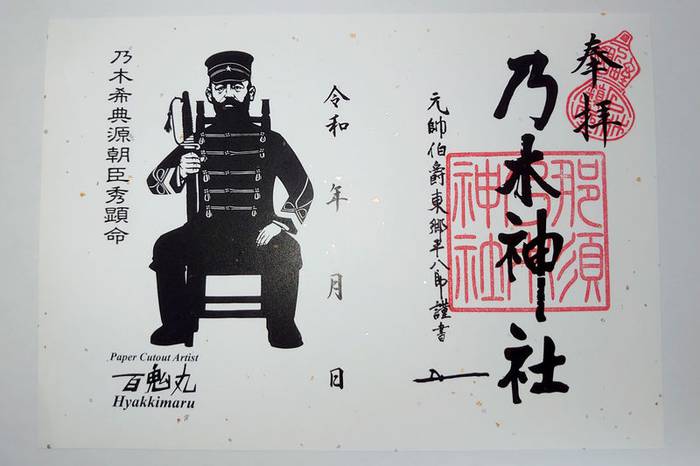 奉拝
乃木神社
那須
乃木
神社
元帥伯爵東郷平八郎謹書
令和 年 月 日
乃木希典源朝臣秀顕命
Paper Cutout Artist
百鬼丸
Hyakkimaru